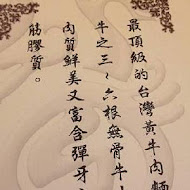 最頂級的台灣黃牛肉麵
牛之三～六根無骨牛小
肉質鮮美又富含彈牙
筋膠質。